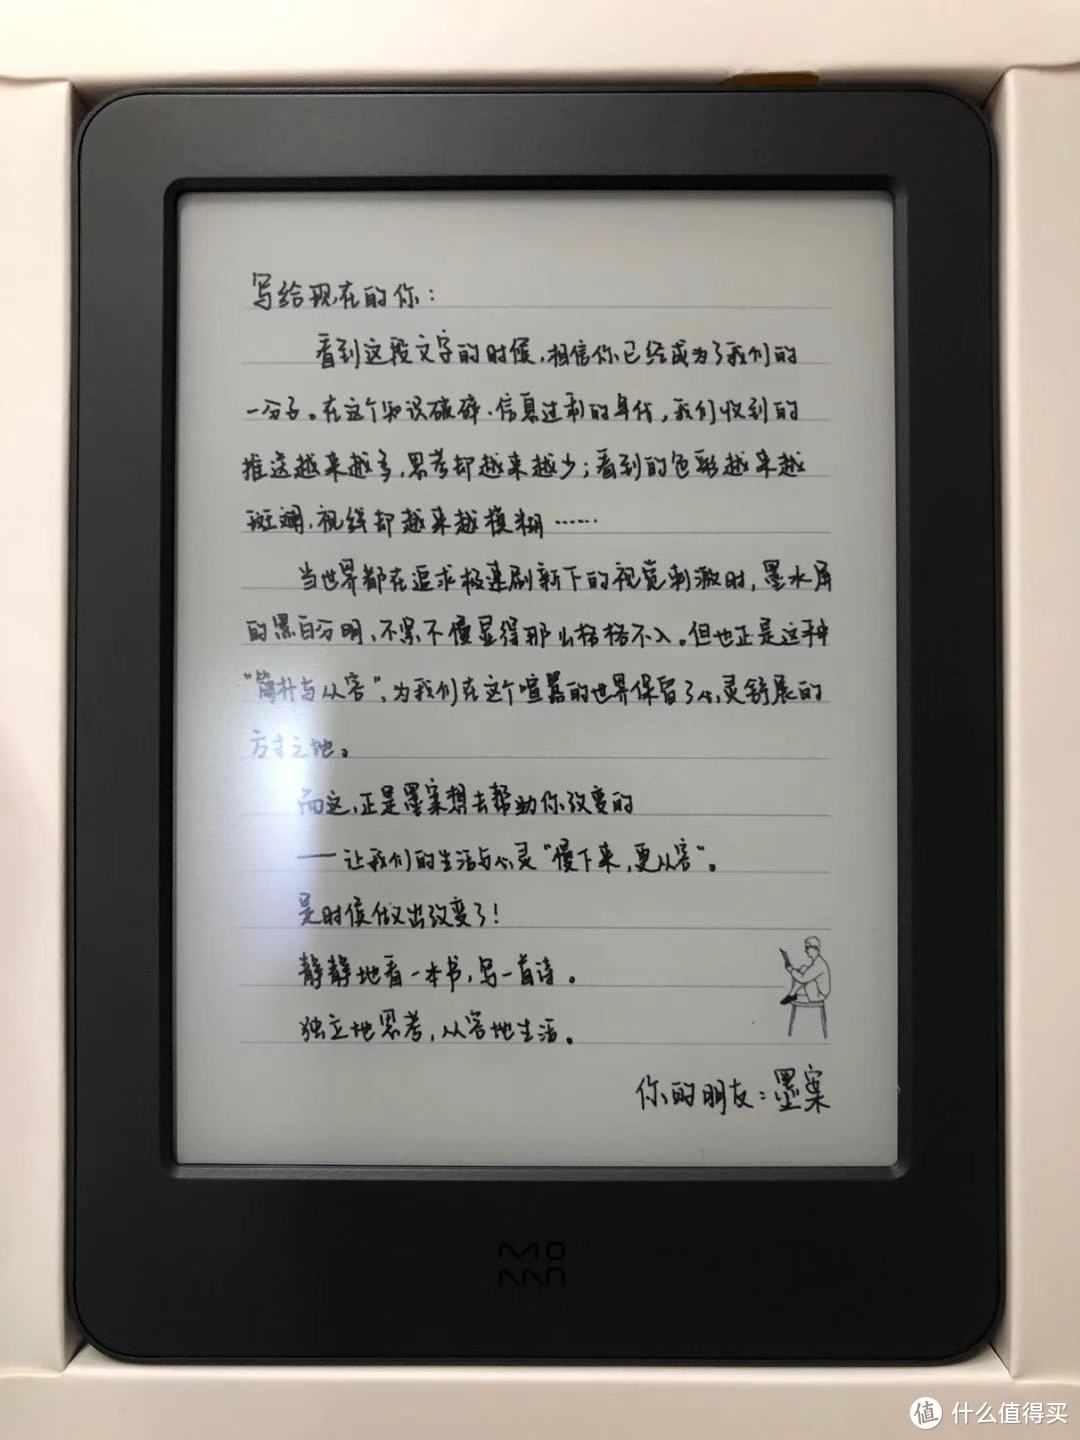 写给现在的你：
看到这段文字的时候，相信你已经成为了我们的
一分子。在这个知识破碎、信息过剩的年代，我们收到的
推送越来越多，思考却越来越少；看到的色彩越来越
斑斓，视线却越来越模糊……
当世界都在追求极速刷新下的视觉刺激时，墨水屏
的黑白分明，不紧不慢显得那么格格不入。但也正是这种
“简朴与从容”，为我们在这个喧嚣的世界保留了心灵舒展的
方寸之地。
而这，正是墨案想去帮助你改变的
——让我们的生活与心灵“慢下来，更从容”。
是时候做出改变了！
静静地看一本书，写一首诗。
独立地思考，从容地生活。
你的朋友：墨案
MO
AN
值 什么值得买